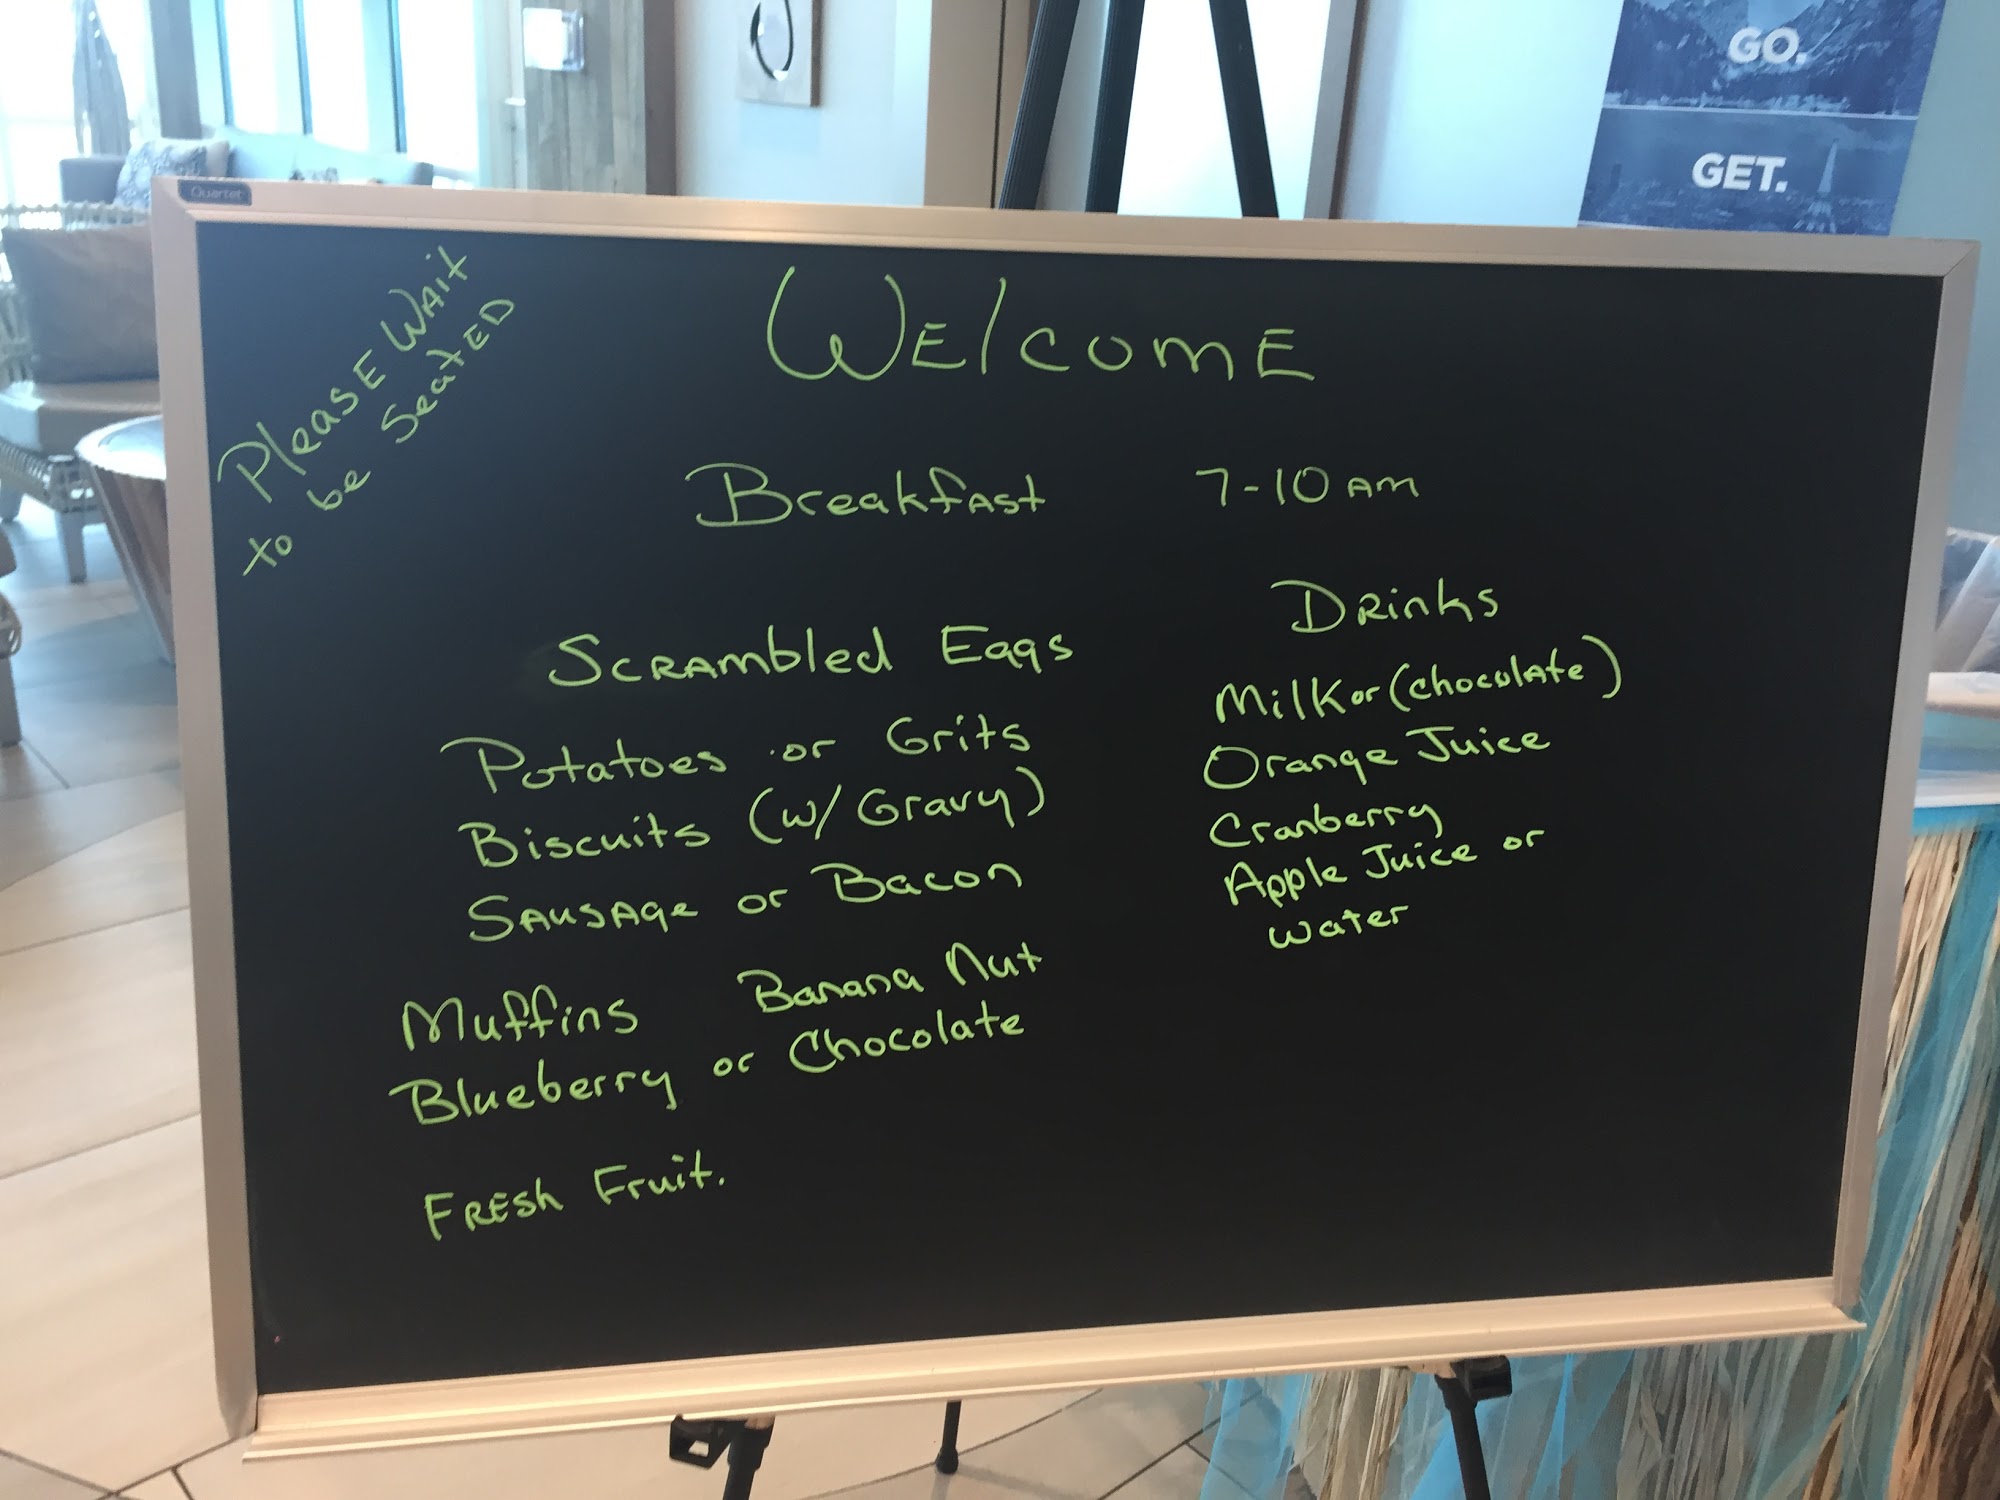 Quartet
GO.
GET.
Please Wait
to be Seated
Welcome
Breakfast 7-10 AM
Scrambled Eggs
Potatoes or Grits
Biscuits (w/ Gravy)
Sausage or Bacon
Muffins Banana Nut
Blueberry or Chocolate
Fresh Fruit.
Drinks
Milk or (chocolate)
Orange Juice
Cranberry
Apple Juice or
water